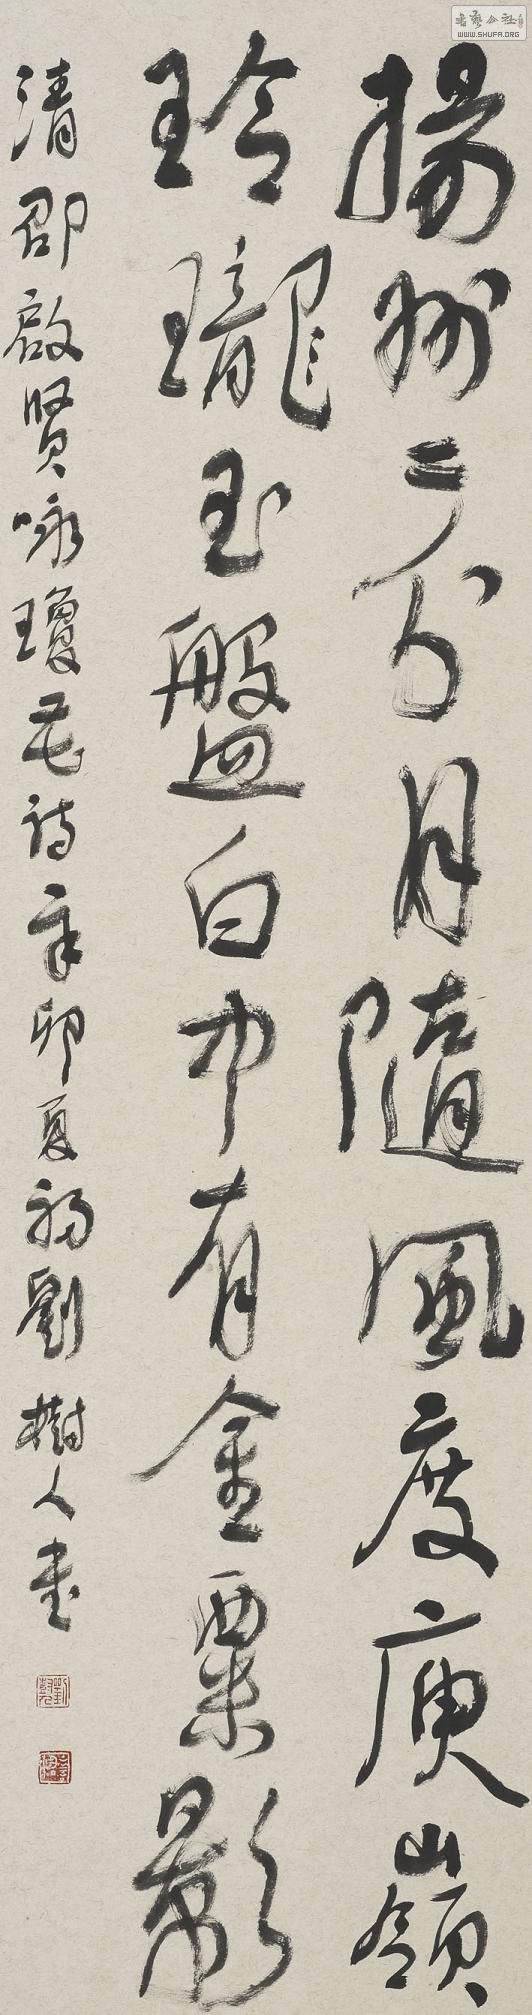 揚州二分月隨風度庾嶺
玲瓏玉盤白中有金粟影
清邵啟賢咏瓊花詩辛卯夏初劉樹人書
書藝公社
WWW.SHUFA.ORG